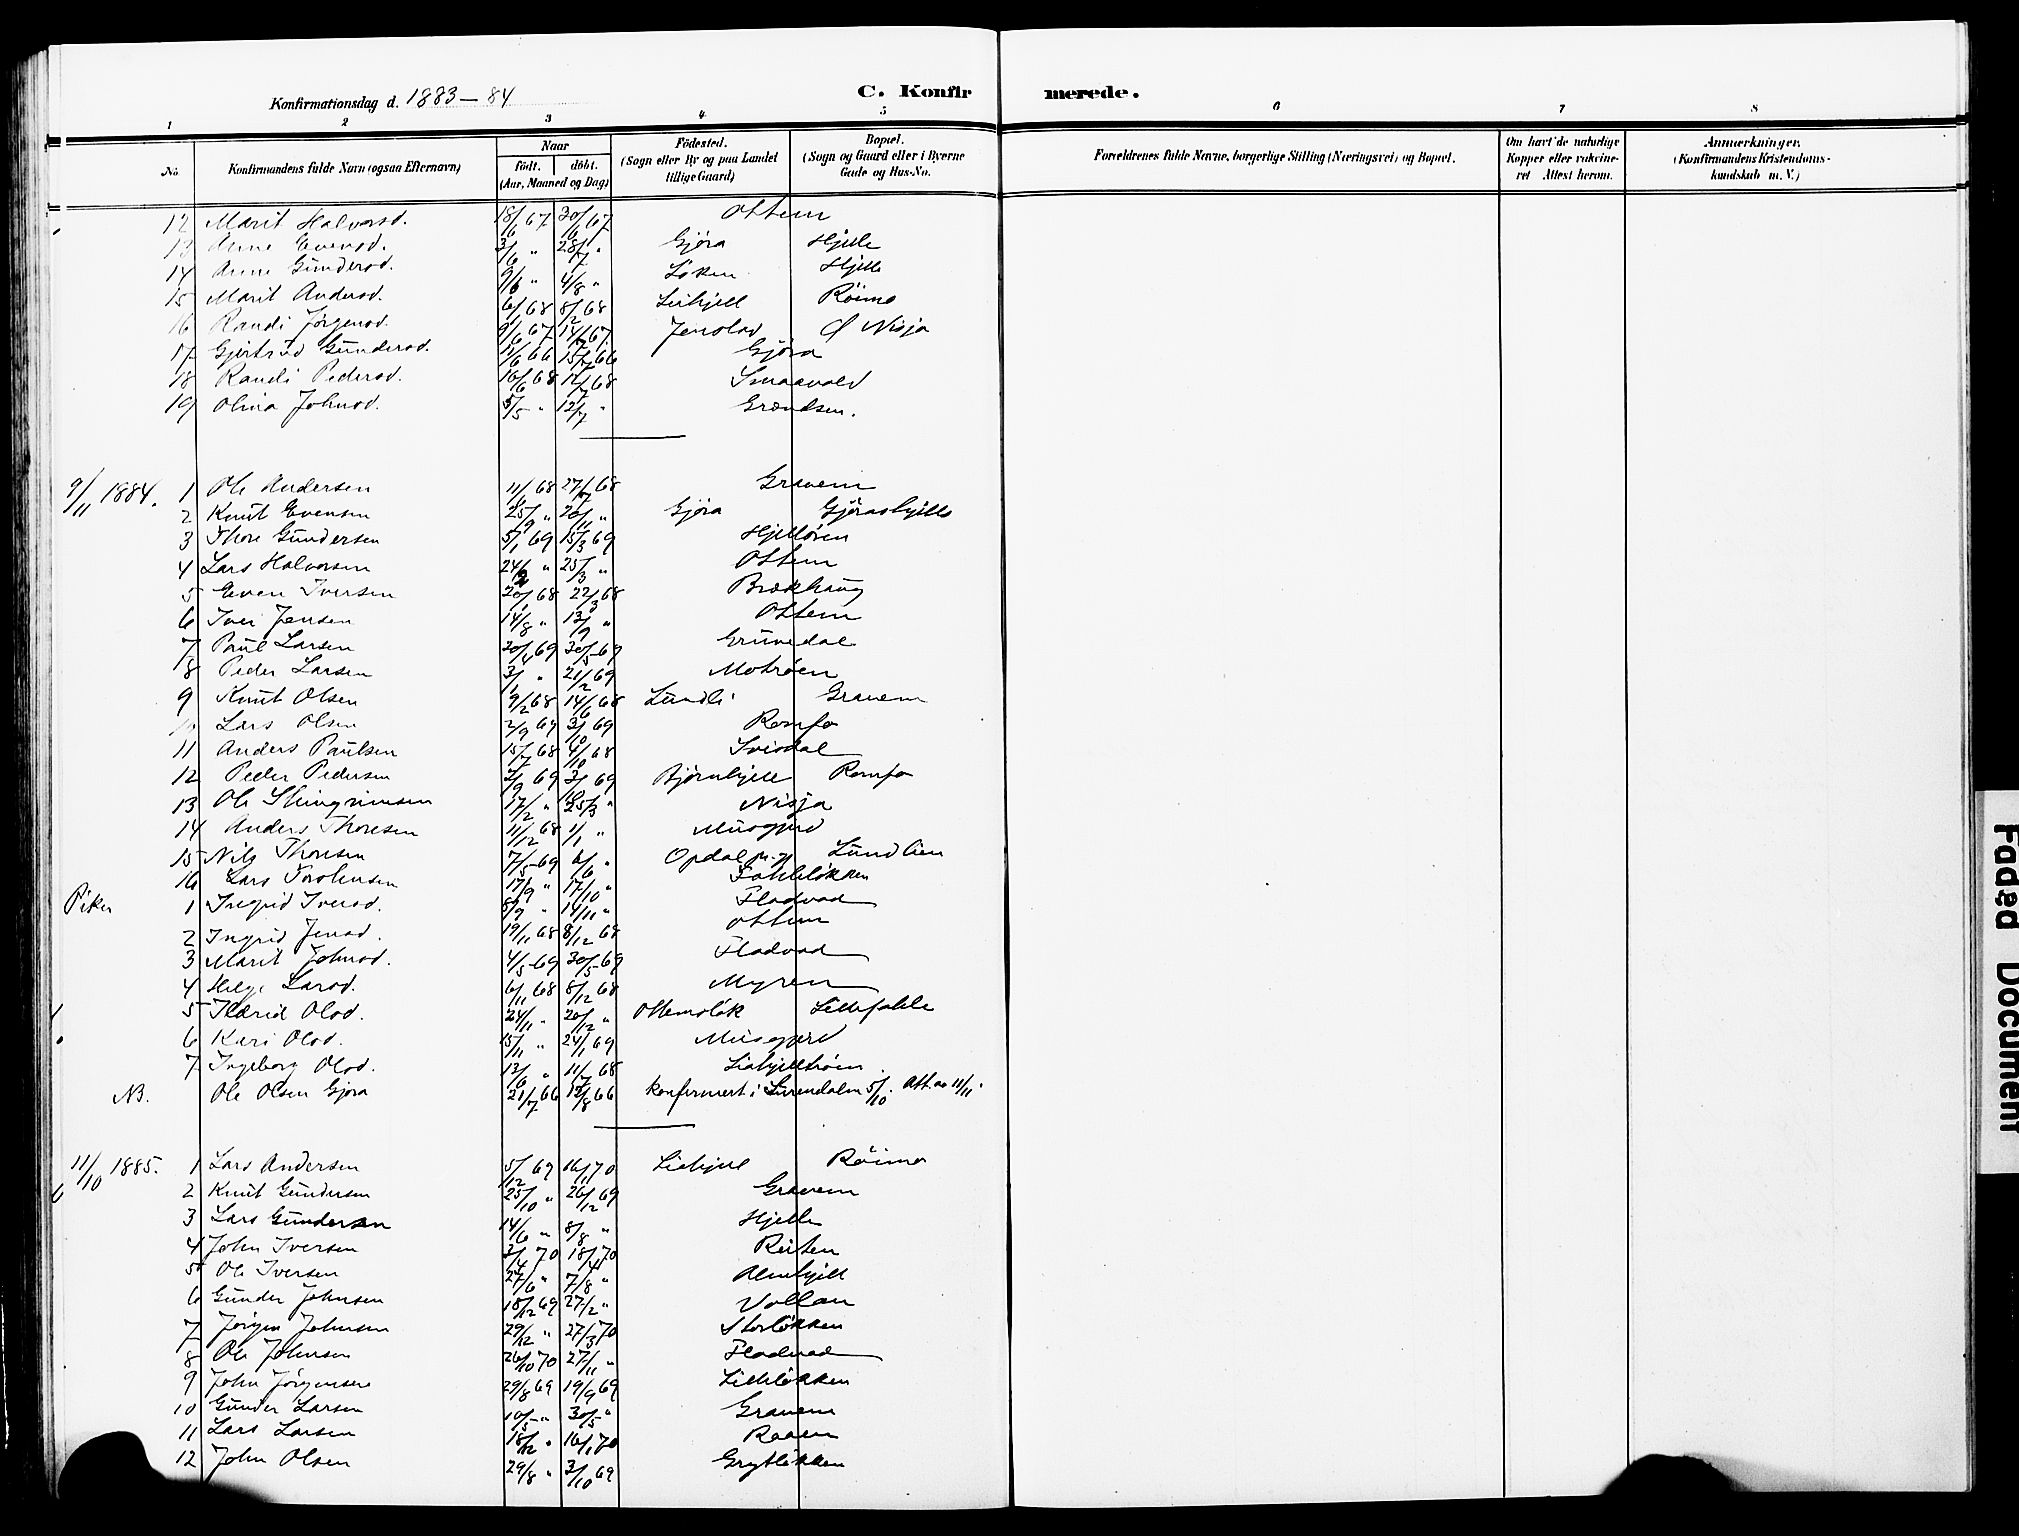 Konfirmationsdag d. 1883–84
C. Konfir merede.
1 2 3 4 5 6 7 8
No.
Konfirmandens fulde Navn (ogsaa Efternavn)
Naar
födt. döbt.
(Aar, Maaned og Dag)
Födested.
(Sogn eller By og paa Landet
tillige Gaard)
Bopæl.
(Sogn og Gaard eller i Byerne
Gade og Hus-No.
Forældrenes fulde Navne, borgerlige Stilling (Næringsvei) og Bopæl.
Om havt de naturlige
Kopper eller vakcine-
ret Attest herom.
Anmærkninger.
(Konfirmandens Kristendoms-
kundskab m. V.)
12 Marit Halvorsd. 18/6 67 30/6 67 Ottem
13 Anne Evensd. 3/6 " 28/7 " Gjöra Hjelle
14 Anne Gundersd. 9/6 " 4/8 " Löken Hjelle
15 Marit Andersd. 6/1 68 8/2 68 Lihjell Röimo
16 Randi Jørgensd. 9/6 67 14/7 67 Jenstad Nisja
17 Gjertrud Gundersd. 11/6 66 15/7 66 Gjöra
18 Randi Pedersd. 16/6 68 12/7 68 Smaavold
19 Olina Johnsd. 5/5 " 12/7 " Grændsen.
9/11 1884. 1 Ole Andersen 11/6 68 27/7 68 Gravem
2 Knut Evensen 25/9 " 20/11 " Gjöra Gjörashjelle
3 Thore Gundersen 5/1 69 15/3 69 Hjellöien
4 Lars Halvorsen 24/2 " 25/3 " Ottem
5 Even Iversen 20/1 68 22/3 68 Brækhaug
6 Iver Jensen 14/8 " 13/9 " Ottem
7 Paul Larsen 20/4 69 30/5 69 Gruvedal
8 Peder Larsen 3/1 " 21/2 69 Motröen
9 Knut Olsen 9/2 68 14/6 68 Lundli Gravem
Lars Olsen 2/9 69 3/10 69 Romfo
11 Anders Paulsen 15/7 68 4/10 68 Svisdal
12 Peder Pedersen 2/9 69 3/10 69 Bjørnhjell Romfo
13 Ole Steingrimsen 17/2 " 25/3 " Nisja
14 Anders Thoresen 11/12 68 1/1 " Musgjerd
15 Nils Thoresen 7/5 69 6/6 " Opdal p.gj Lundlien
16 Lars Torstensen 17/9 " 17/10 " Fahleløkken
Piker 1 Ingrid Iversd. 8/9 " 14/11 " Fladvad
2 Ingrid Jensd. 19/11 68 8/12 68 Ottem
3 Marit Johnsd. 4/5 69 30/5 69 Fladvad
4 Helge Larsd. 6/11 68 8/12 68 Myren
5 Ildrid Olsd. 24/11 " 20/12 " Ottemsløk Lillefahle
6 Kari Olsd. 15/11 " 24/1 69 Musgjerd
7 Ingeborg Olsd. 13/6 " 11/7 68 Liahjelltröen
NB. Ole Olsen Gjöra 21/7 66 12/8 66 konfirmert i Surendalen 5/10. Att. av 11/11.
11/10 1885. 1 Lars Andersen 5/12 69 16/1 70 Liehjell Röimo
2 Knut Gundersen 25/10 " 26/12 69 Gravem
3 Lars Gundersen 14/6 " 8/8 " Hjelle
4 John Iversen 3/4 70 18/4 70 Reiten
5 Ole Iversen 27/6 " 7/8 " Almhjell
6 Gunder Johnsen 18/12 69 27/2 " Vollan
7 Jørgen Johnsen 29/12 " 27/3 70 Storløkken
8 Ole Johnsen 26/10 70 27/11 " Fladvad
9 John Jørgensen 29/8 69 19/9 69 Lilleløkken
10 Gunder Larsen 10/5 " 30/5 " Gravem
11 Lars Larsen 18/12 " 16/1 70 Raaen
12 John Olsen 29/8 " 3/10 69 Grytløkken
Faded Document